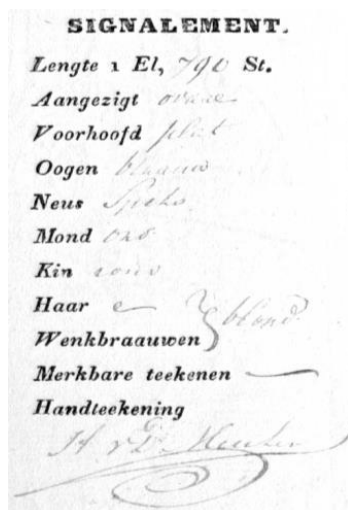 SIGNALEMENT.
Lengte 1 El, 790 St.
Aangezigt ovaal
Voorhoofd plat
Oogen blaauw
Neus Spits
Mond ord
Kin rond
Haar blond
Wenkbraauwen
Merkbare teekenen —
Handteekening